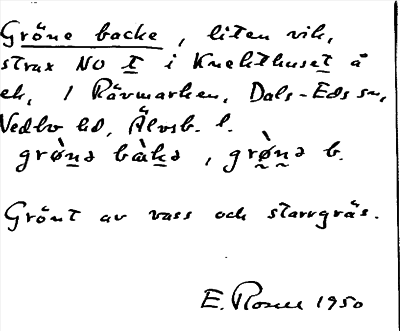 Gröne backe, liten vik,
strax NO T i Knekthuset å
ek, 1 Rävmarken, Dals-Eds sn,
Vedbo hd, Älvsb. l.
grø̀nə bàkə, grø̀nə b.
Grönt av vass och starrgräs.
E. Rosell 1950